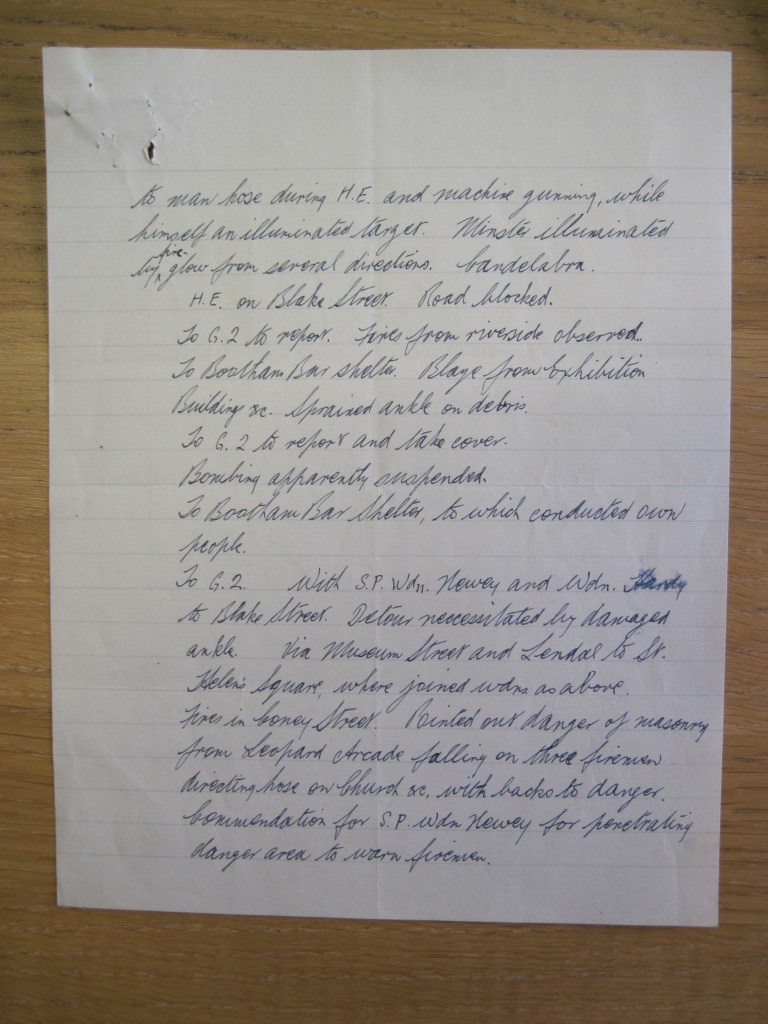 to man hose during H.E. and machine gunning, while
himself an illuminated target. Minster illuminated
by fire-glow from several directions. Candelabra.
H.E. on Blake Street. Road blocked.
To G.2 to report. Fires from riverside observed.
To Bootham Bar shelter. Blaze from Exhibition
Building &c. Sprained ankle on debris.
To G.2 to report and take cover.
Bombing apparently suspended.
To Bootham Bar Shelter, to which conducted own
people.
To G.2. With S.P. Wdn. Newey and Wdn. Hardy
to Blake Street. Detour necessitated by damaged
ankle. Via Museum Street and Lendal to St.
Helen's Square, where joined wdns as above.
Fires in Coney Street. Pointed out danger of masonry
from Leopard Arcade falling on three firemen
directing hose on Church &c. with backs to danger.
Commendation for S.P. Wdn Newey for penetrating
danger area to warn firemen.